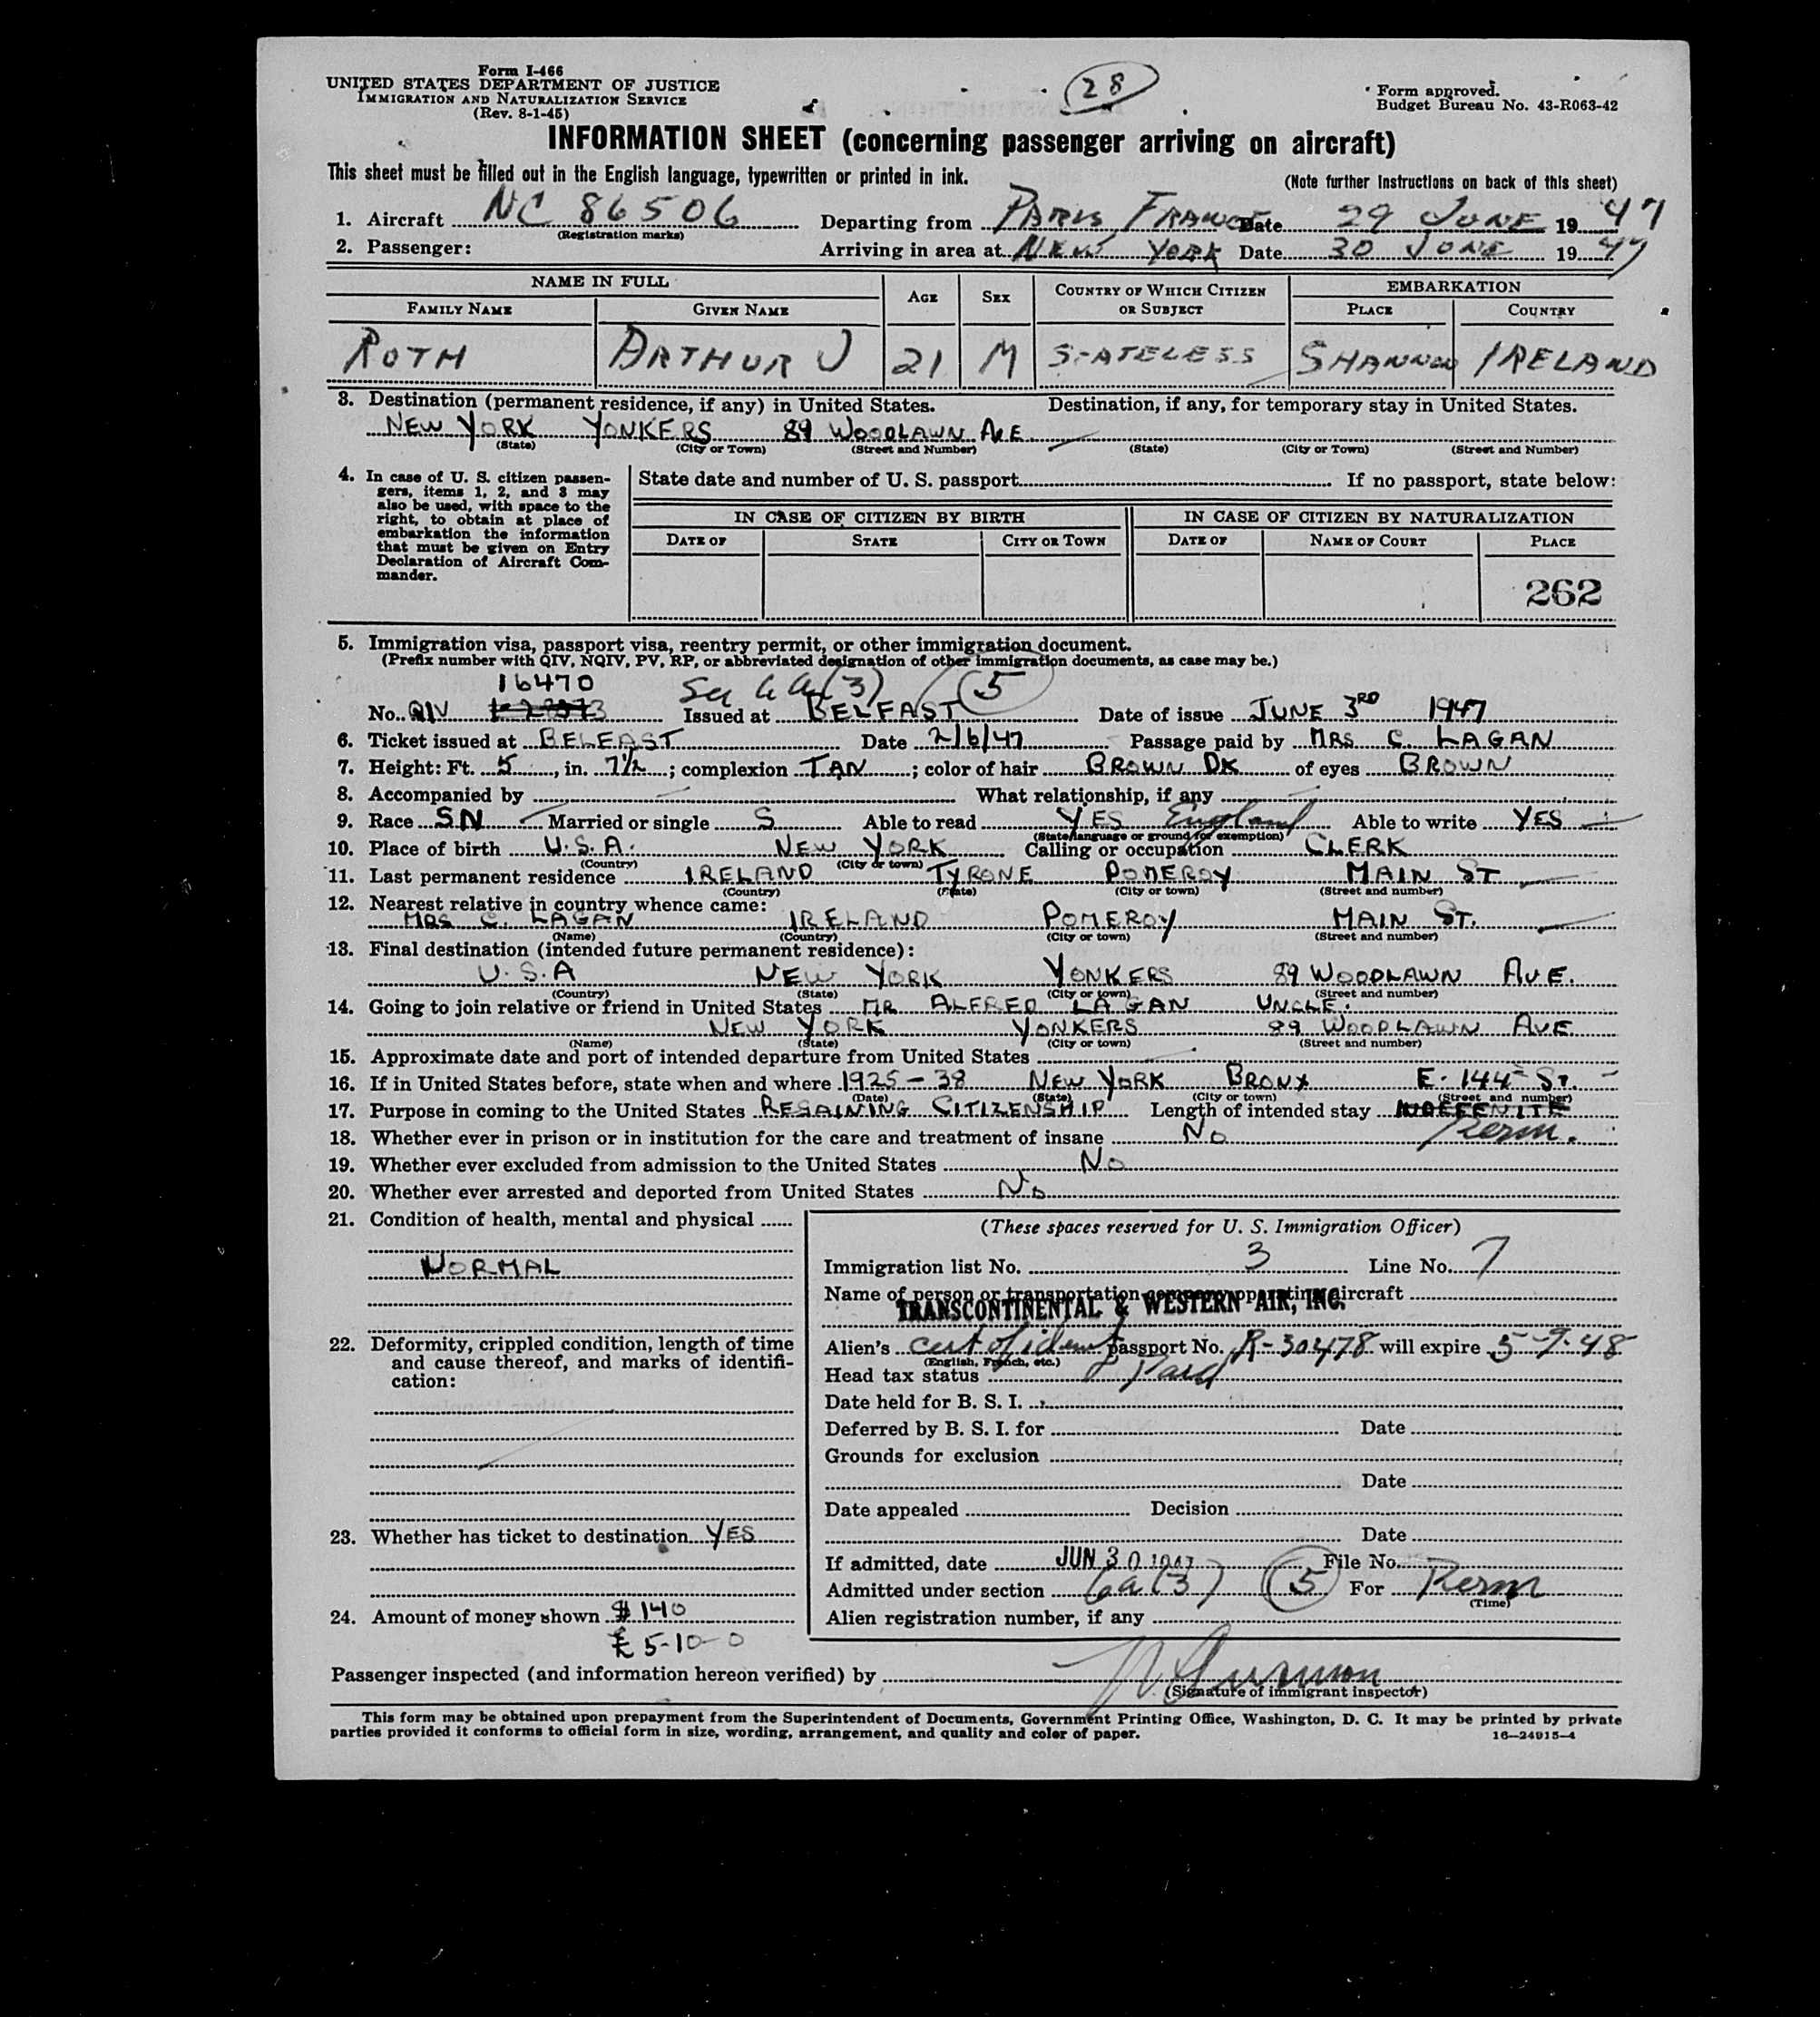 Form I-466
UNITED STATES DEPARTMENT OF JUSTICE
IMMIGRATION AND NATURALIZATION SERVICE
(Rev. 8-1-45)
28
Form approved.
Budget Bureau No. 43-R063-42
INFORMATION SHEET (concerning passenger arriving on aircraft)
This sheet must be filled out in the English language, typewritten or printed in ink.
(Note further instructions on back of this sheet)
1. Aircraft NC 86506 Departing from PARIS FRANCE Date 29 JUNE 1947
(Registration marks)
2. Passenger: Arriving in area at NEW YORK Date 30 JUNE 1947
NAME IN FULL AGE SEX COUNTRY OF WHICH CITIZEN OR SUBJECT EMBARKATION
FAMILY NAME GIVEN NAME PLACE COUNTRY
ROTH ARTHUR J 21 M STATELESS SHANNON IRELAND
3. Destination (permanent residence, if any) in United States. Destination, if any, for temporary stay in United States.
NEW YORK YONKERS 89 WOODLAWN AVE.
(State) (City or Town) (Street and Number) (State) (City or Town) (Street and Number)
4. In case of U. S. citizen passengers, items 1, 2, and 3 may also be used, with space to the right, to obtain at place of embarkation the information that must be given on Entry Declaration of Aircraft Commander.
State date and number of U. S. passport If no passport, state below:
IN CASE OF CITIZEN BY BIRTH IN CASE OF CITIZEN BY NATURALIZATION
DATE OF STATE CITY OR TOWN DATE OF NAME OF COURT PLACE
262
5. Immigration visa, passport visa, reentry permit, or other immigration document.
(Prefix number with QIV, NQIV, PV, RP, or abbreviated designation of other immigration documents, as case may be.)
16470 6a(3) 5
No. QIV Issued at BELFAST Date of issue JUNE 3RD 1947
6. Ticket issued at BELFAST Date 2/6/47 Passage paid by MRS C. LAGAN
7. Height: Ft. 5, in. 7½; complexion TAN; color of hair BROWN DK of eyes BROWN
8. Accompanied by What relationship, if any
9. Race SN Married or single S Able to read YES England Able to write YES
(State language or ground for exemption)
10. Place of birth U.S.A. NEW YORK Calling or occupation CLERK
(Country) (City or town)
11. Last permanent residence IRELAND TYRONE POMEROY MAIN ST
(Country) (State) (City or town) (Street and number)
12. Nearest relative in country whence came:
MRS C. LAGAN IRELAND POMEROY MAIN ST.
(Name) (Country) (City or town) (Street and number)
13. Final destination (intended future permanent residence):
U.S.A NEW YORK YONKERS 89 WOODLAWN AVE.
(Country) (State) (City or town) (Street and number)
14. Going to join relative or friend in United States MR ALFRED LAGAN UNCLE.
NEW YORK YONKERS 89 WOODLAWN AVE
(Name) (State) (City or town) (Street and number)
15. Approximate date and port of intended departure from United States
16. If in United States before, state when and where 1925-38 NEW YORK BRONX E. 144 ST.
(Date) (State) (City or town) (Street and number)
17. Purpose in coming to the United States REGAINING CITIZENSHIP Length of intended stay INDEFENITE
Perm.
18. Whether ever in prison or in institution for the care and treatment of insane NO
19. Whether ever excluded from admission to the United States NO
20. Whether ever arrested and deported from United States NO
21. Condition of health, mental and physical
NORMAL
22. Deformity, crippled condition, length of time and cause thereof, and marks of identification:
23. Whether has ticket to destination YES
24. Amount of money shown $140
£ 5-10-0
(These spaces reserved for U. S. Immigration Officer)
Immigration list No. 3 Line No. 7
Name of person or transportation company operating aircraft
TRANSCONTINENTAL & WESTERN AIR, INC.
Alien's cert of ident passport No. R-30478 will expire 5-9-48
(English, French, etc.)
Head tax status Paid
Date held for B. S. I.
Deferred by B. S. I. for Date
Grounds for exclusion
Date
Date appealed Decision
Date
If admitted, date JUN 30 1947 File No.
Admitted under section 6a(3) 5 For Perm
(Time)
Alien registration number, if any
Passenger inspected (and information hereon verified) by
(Signature of immigrant inspector)
This form may be obtained upon prepayment from the Superintendent of Documents, Government Printing Office, Washington, D. C. It may be printed by private
parties provided it conforms to official form in size, wording, arrangement, and quality and color of paper.
16—24915-4